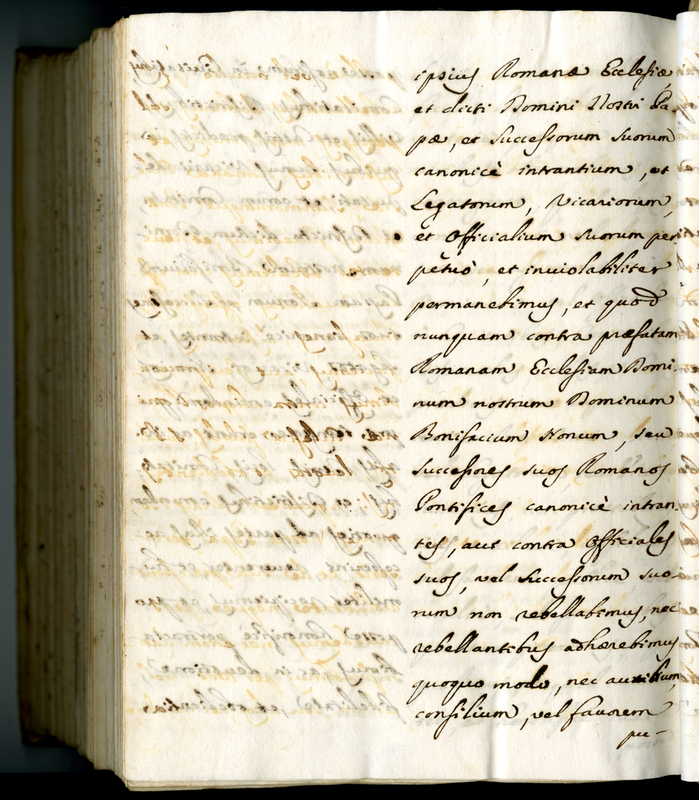 ipsius Romanæ Ecclesiæ,
et dicti Domini Nostri Pa-
pæ, et Successorum suorum
canonicè intrantium, et
Legatorum, Vicariorum,
et Officialium suorum per-
petuò, et inviolabiliter
permanebimus, et quod
nunquam contra præfatam
Romanam Ecclesiam Domi-
num nostrum Dominum
Bonifacium Nonum, seu
successores suos Romanos
Pontifices canonicè intran-
tes, aut contra Officiales
suos, vel Successorum suo-
rum non rebellabimus, nec
rebellantibus adhærebimus
quoquo modo, nec auxilium,
consilium, vel favorem
pu-